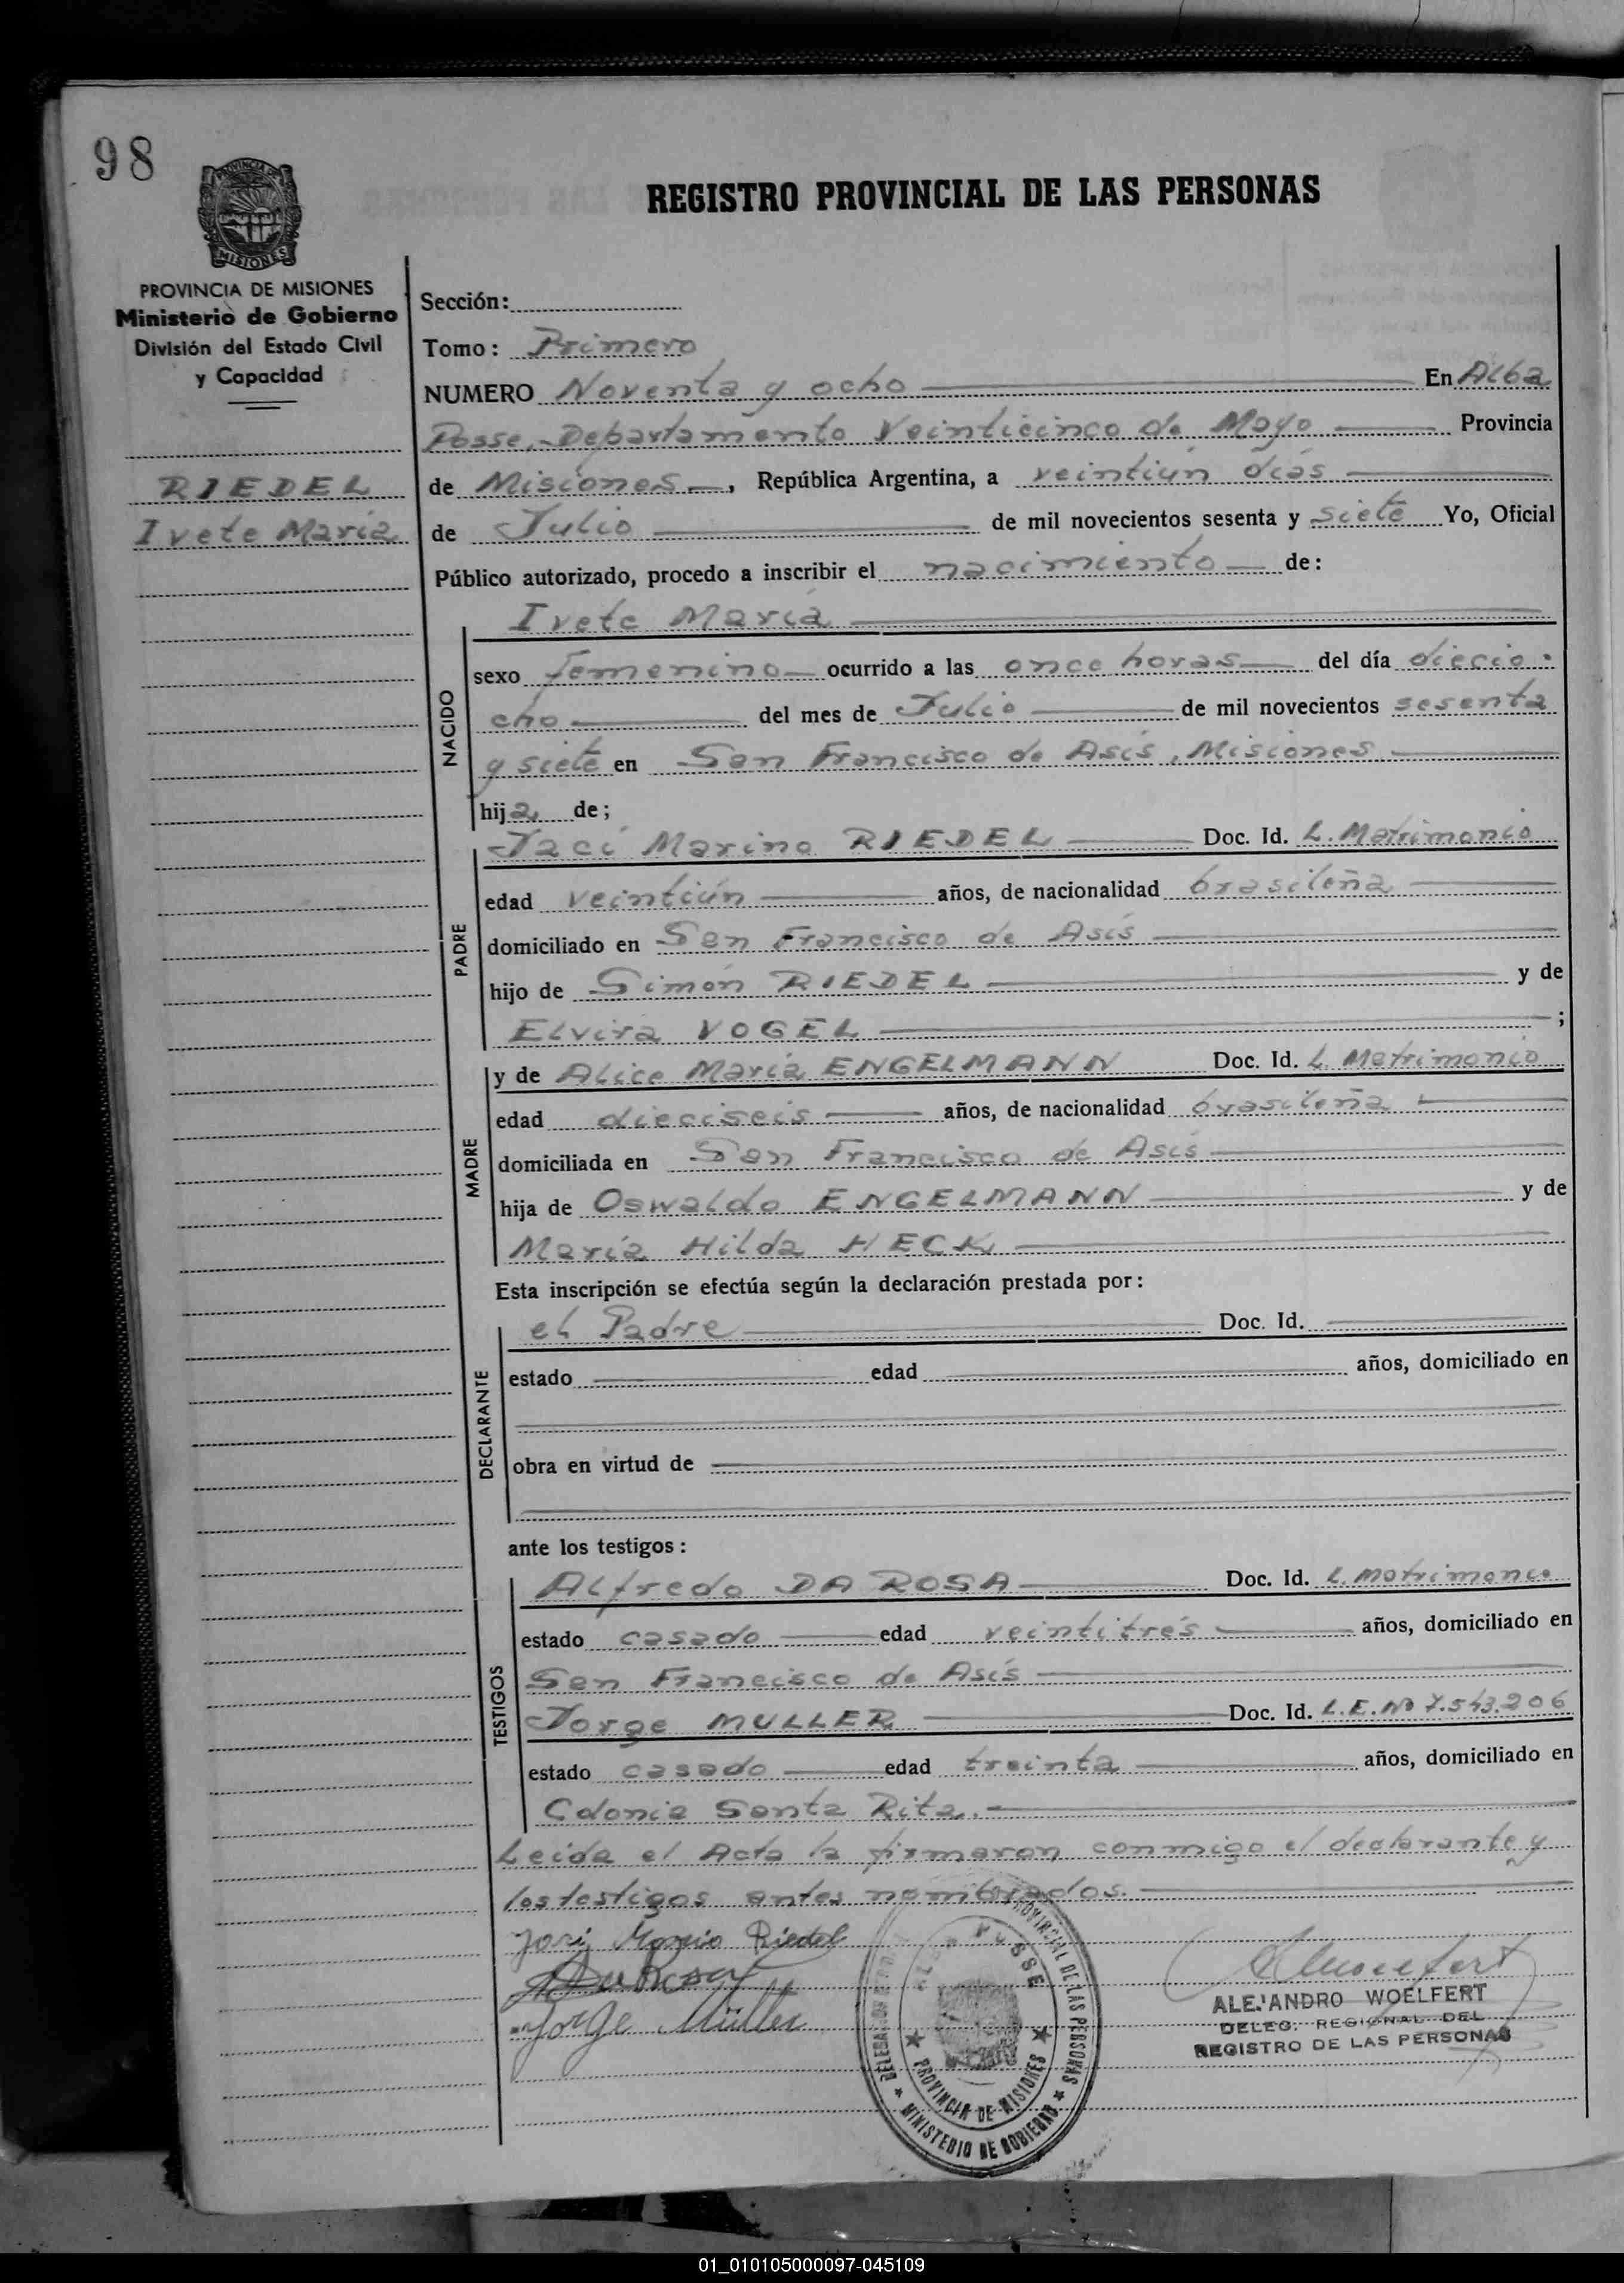 98
PROVINCIA DE
MISIONES
REGISTRO PROVINCIAL DE LAS PERSONAS
PROVINCIA DE MISIONES
Ministerio de Gobierno
División del Estado Civil
y Capacidad
RIEDEL
Ivete María
Sección:
Tomo: Primero
NUMERO Noventa y ocho En Alba
Posse, Departamento Veinticinco de Mayo Provincia
de Misiones, República Argentina, a veintiún días
de Julio de mil novecientos sesenta y siete Yo, Oficial
Público autorizado, procedo a inscribir el nacimiento de:
Ivete María
NACIDO
sexo femenino ocurrido a las once horas del día diecio-
cho del mes de Julio de mil novecientos sesenta
y siete en San Francisco de Asís, Misiones
hija de;
PADRE
Jaci Marino RIEDEL Doc. Id. L. Matrimonio
edad veintiún años, de nacionalidad brasileña
domiciliado en San Francisco de Asís
hijo de Simón RIEDEL y de
Elvira VOGEL ;
MADRE
y de Alice María ENGELMANN Doc. Id. L. Matrimonio
edad dieciseis años, de nacionalidad brasileña
domiciliada en San Francisco de Asís
hija de Oswaldo ENGELMANN y de
María Hilda HECK
Esta inscripción se efectúa según la declaración prestada por:
DECLARANTE
el Padre Doc. Id.
estado edad años, domiciliado en
obra en virtud de
ante los testigos:
TESTIGOS
Alfredo DA ROSA Doc. Id. L. Matrimonio
estado casado edad veintitrés años, domiciliado en
San Francisco de Asís
Jorge MULLER Doc. Id. L.E. Nº 7.543.206
estado casado edad treinta años, domiciliado en
Colonia Santa Rita.
Leida el Acta la firmaron conmigo el declarante y
los testigos antes nombrados.
Riedel
Jorge Müller
PROVINCIAL DE LAS PERSONAS
POSSE
PROVINCIA DE MISIONES
MINISTERIO DE GOBIERNO
ALEJANDRO WOELFERT
DELEG. REGIONAL DEL
REGISTRO DE LAS PERSONAS
01_010105000097-045109